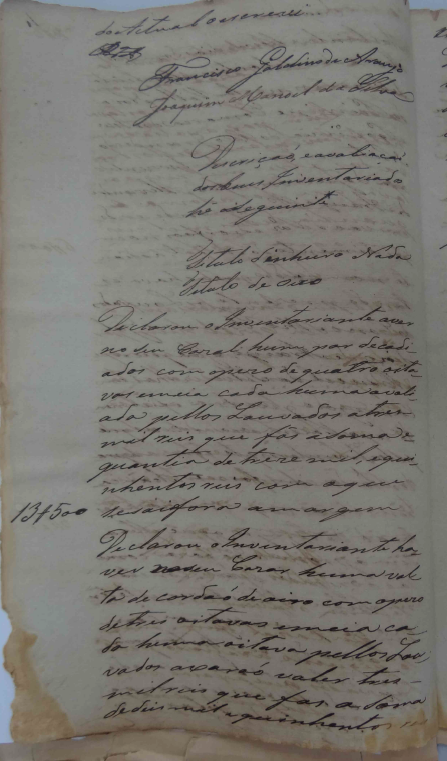 Francisco Galdino de Araujo
Joaquim Manoel da Silva
Discrição, e avaliação
dos bens Inventariados
hé aseguinte
Titulo dinheiro Nada
Titulo de oiro
Declarou o Inventariante aver
no seu Cazal hum par de
com opezo de quatro oita
vas emeia cada huma avali
ada pellos Louvados a tres
mil reis que fás a soma e
quantia de treze mil, equi
nhentos reis com a que
se saé fora a margem
13$500
Declarou o Inventariante ha
ver no seu Cazar huma vol
ta de cordaó de oiro com opezo
de tres oitavas emeia ca
da huma oitava pellos Lou
vados axaraó valer tres
mil reis que fas a soma
de deis mil e quinhentos reis